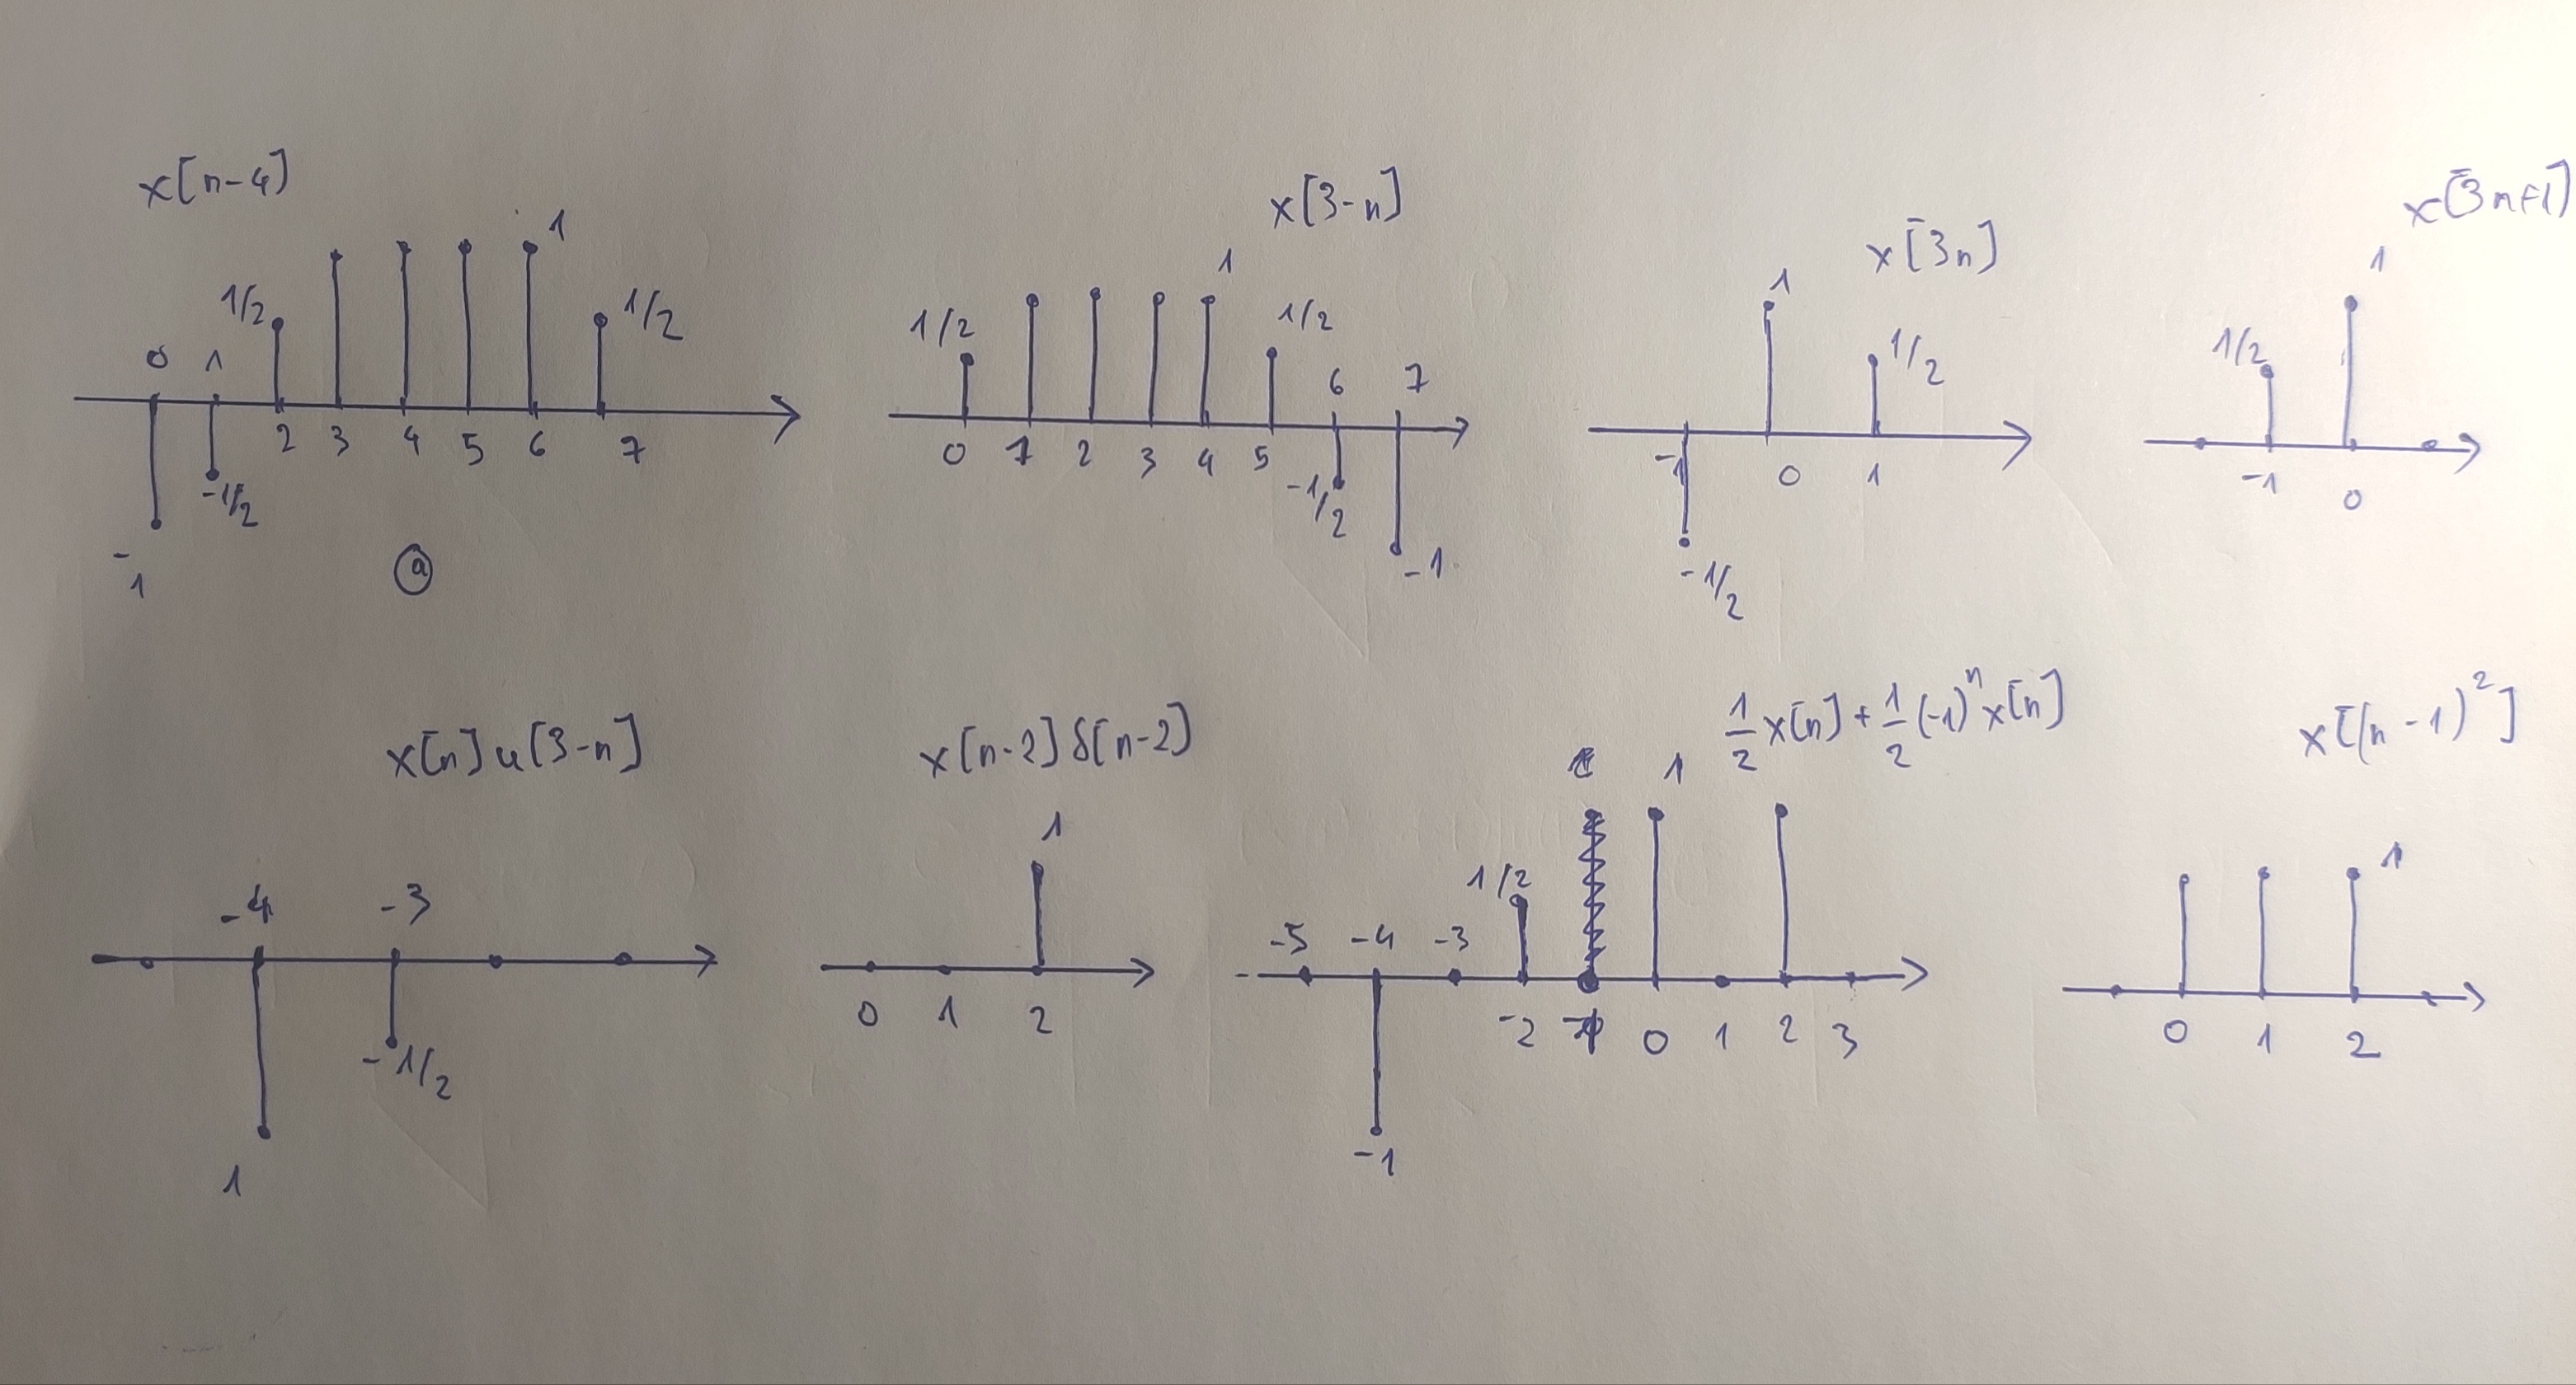 x[n-4]
1
1/2
1/2
0 1
2 3 4 5 6 7
-1/2
-1
a
x[3-n]
1
1/2
1/2
6 7
0 1 2 3 4 5
-1/2
-1
x[3n]
1
1/2
-1 0 1
-1/2
x[3n+1]
1
1/2
-1 0
x[n]u[3-n]
-4 -3
-1/2
1
x[n-2]δ[n-2]
1
0 1 2
1/2 x[n] + 1/2 (-1)^n x[n]
1
1/2
-5 -4 -3
-2 -1 0 1 2 3
-1
x[(n-1)²]
1
0 1 2